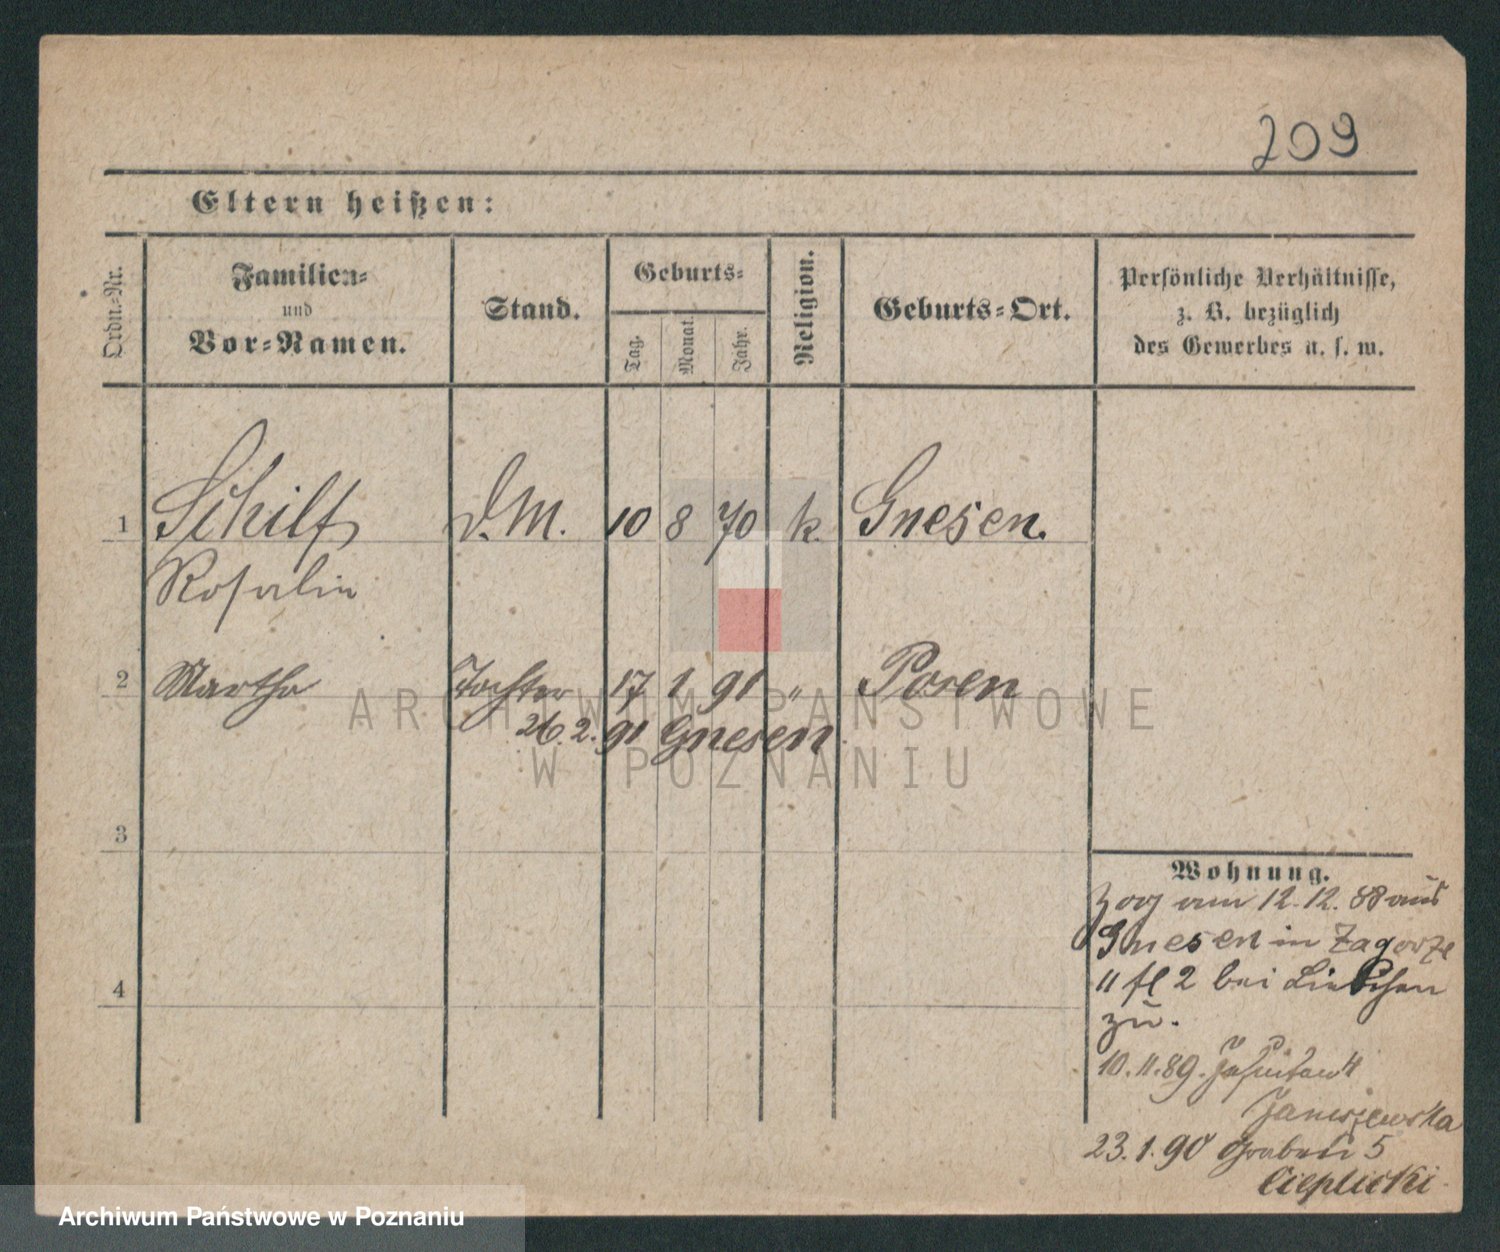 209
Eltern heißen:
Ordn.-Nr.
Familien-
und
Vor-Namen.
Stand.
Geburts-
Tag.
Monat.
Jahr.
Religion.
Geburts-Ort.
Persönliche Verhältnisse,
z. B. bezüglich
des Gewerbes u. s. w.
1 Schilf D.M. 10 8 70 k. Gnesen.
Rosalie
2 Martha Tochter 17 1 91 " Posen
26. 2. 91 Gnesen
3
4
Wohnung.
Zog am 12.12. 88 aus
Gnesen in Zagorze
11 fl 2 bei
zu.
10.11.89. Jesuitenst 4
Janiszewska
23.1.90 Graben 5
Cieplicki
ARCHIWUM PAŃSTWOWE
W POZNANIU
Archiwum Państwowe w Poznaniu